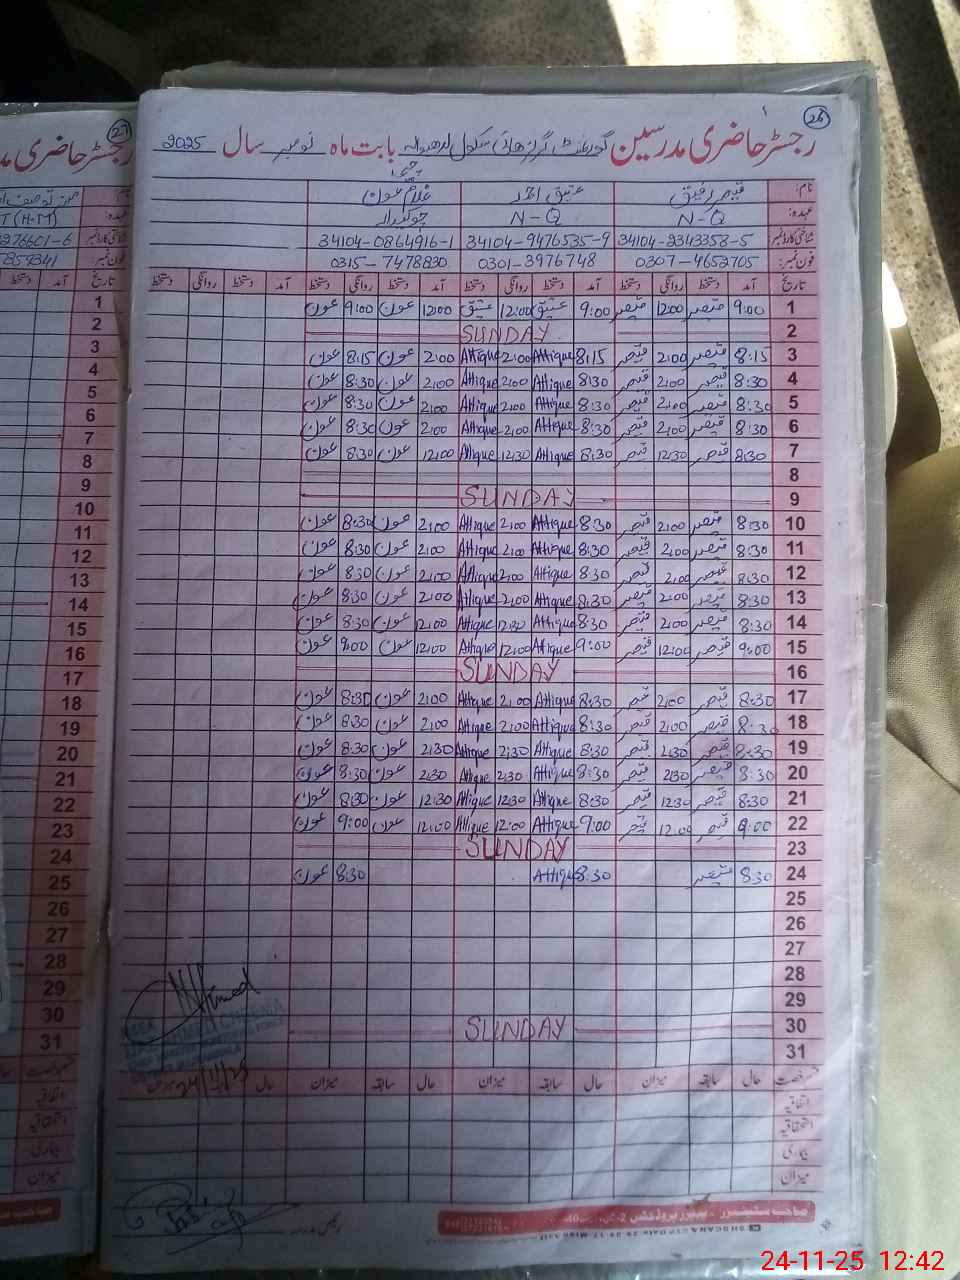 26
رجسٹر حاضری مدرسین گورنمنٹ گرلز ہائی سکول لدھیوالہ بابت ماہ نومبر سال 2025
نام: قیصر رفیق عتیق احمد غلام عون
عہدہ: N-Q N-Q چوکیدار
شناختی کارڈ نمبر 34104-2343358-5 34104-9476535-9 34104-0864916-1
فون نمبر: 0307-4652705 0301-3976748 0315-7478830
تاریخ آمد دستخط روانگی دستخط آمد دستخط روانگی دستخط آمد دستخط روانگی دستخط آمد دستخط روانگی دستخط
1 9:00 قیصر 12:00 قیصر 9:00 عتیق 12:00 عتیق 12:00 عون 9:00 عون
2 SUNDAY
3 8:15 قیصر 2:00 قیصر 8:15 Attique 2:00 Attique 2:00 عون 8:15 عون
4 8:30 قیصر 2:00 قیصر 8:30 Attique 2:00 Attique 2:00 عون 8:30 عون
5 8:30 قیصر 2:00 قیصر 8:30 Attique 2:00 Attique 2:00 عون 8:30 عون
6 8:30 قیصر 2:00 قیصر 8:30 Attique 2:00 Attique 2:00 عون 8:30 عون
7 8:30 قیصر 12:30 قیصر 8:30 Attique 12:30 Attique 12:00 عون 8:30 عون
8
9 SUNDAY
10 8:30 قیصر 2:00 قیصر 8:30 Attique 2:00 Attique 2:00 عون 8:30 عون
11 8:30 قیصر 2:00 قیصر 8:30 Attique 2:00 Attique 2:00 عون 8:30 عون
12 8:30 قیصر 2:00 قیصر 8:30 Attique 2:00 Attique 2:00 عون 8:30 عون
13 8:30 قیصر 2:00 قیصر 8:30 Attique 2:00 Attique 2:00 عون 8:30 عون
14 8:30 قیصر 12:00 قیصر 8:30 Attique Attique 12:00 عون 8:30 عون
15 9:00 قیصر 12:00 قیصر 9:00 Attique 12:00 Attique 12:00 عون 9:00 عون
16 SUNDAY
17 8:30 قیصر 2:00 قیصر 8:30 Attique 2:00 Attique 2:00 عون 8:30 عون
18 8:30 قیصر 2:00 قیصر 8:30 Attique 2:00 Attique 2:00 عون 8:30 عون
19 8:30 قیصر 2:30 قیصر 8:30 Attique 2:30 Attique 2:30 عون 8:30 عون
20 8:30 قیصر 2:30 قیصر 8:30 Attique 2:30 Attique 2:30 عون 8:30 عون
21 8:30 قیصر 12:30 قیصر 8:30 Attique 12:30 Attique 12:30 عون 8:30 عون
22 9:00 قیصر 12:00 قیصر 9:00 Attique 12:00 Attique 12:00 عون 9:00 عون
23 SUNDAY
24 8:30 قیصر 8:30 Attique 8:30 عون
25
26
27
28
29
30 SUNDAY
31
حال سابقہ میزان حال سابقہ میزان حال سابقہ میزان حال
24/11/25
اتفاقیہ
استحقاقیہ
بیماری
میزان
27
رجسٹر حاضری
تاریخ آمد دستخط
1
2
3
4
5
6
7
8
9
10
11
12
13
14
15
16
17
18
19
20
21
22
23
24
25
26
27
28
29
30
31
اتفاقیہ
استحقاقیہ
بیماری
میزان
24-11-25 12:42